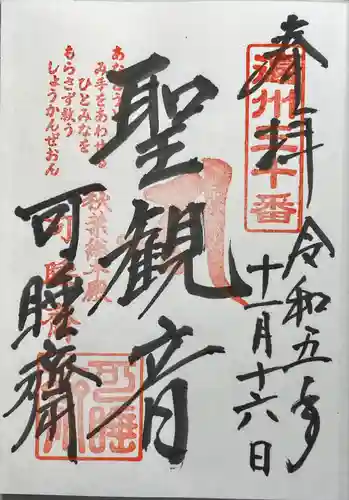 奉拝
遠州三十番
令和五年
十一月十六日
聖観音
あなとう
み手をあわせる
ひとみなを
もらさず救う
しょうかんぜおん
秋葉総本殿
可睡齋
可睡